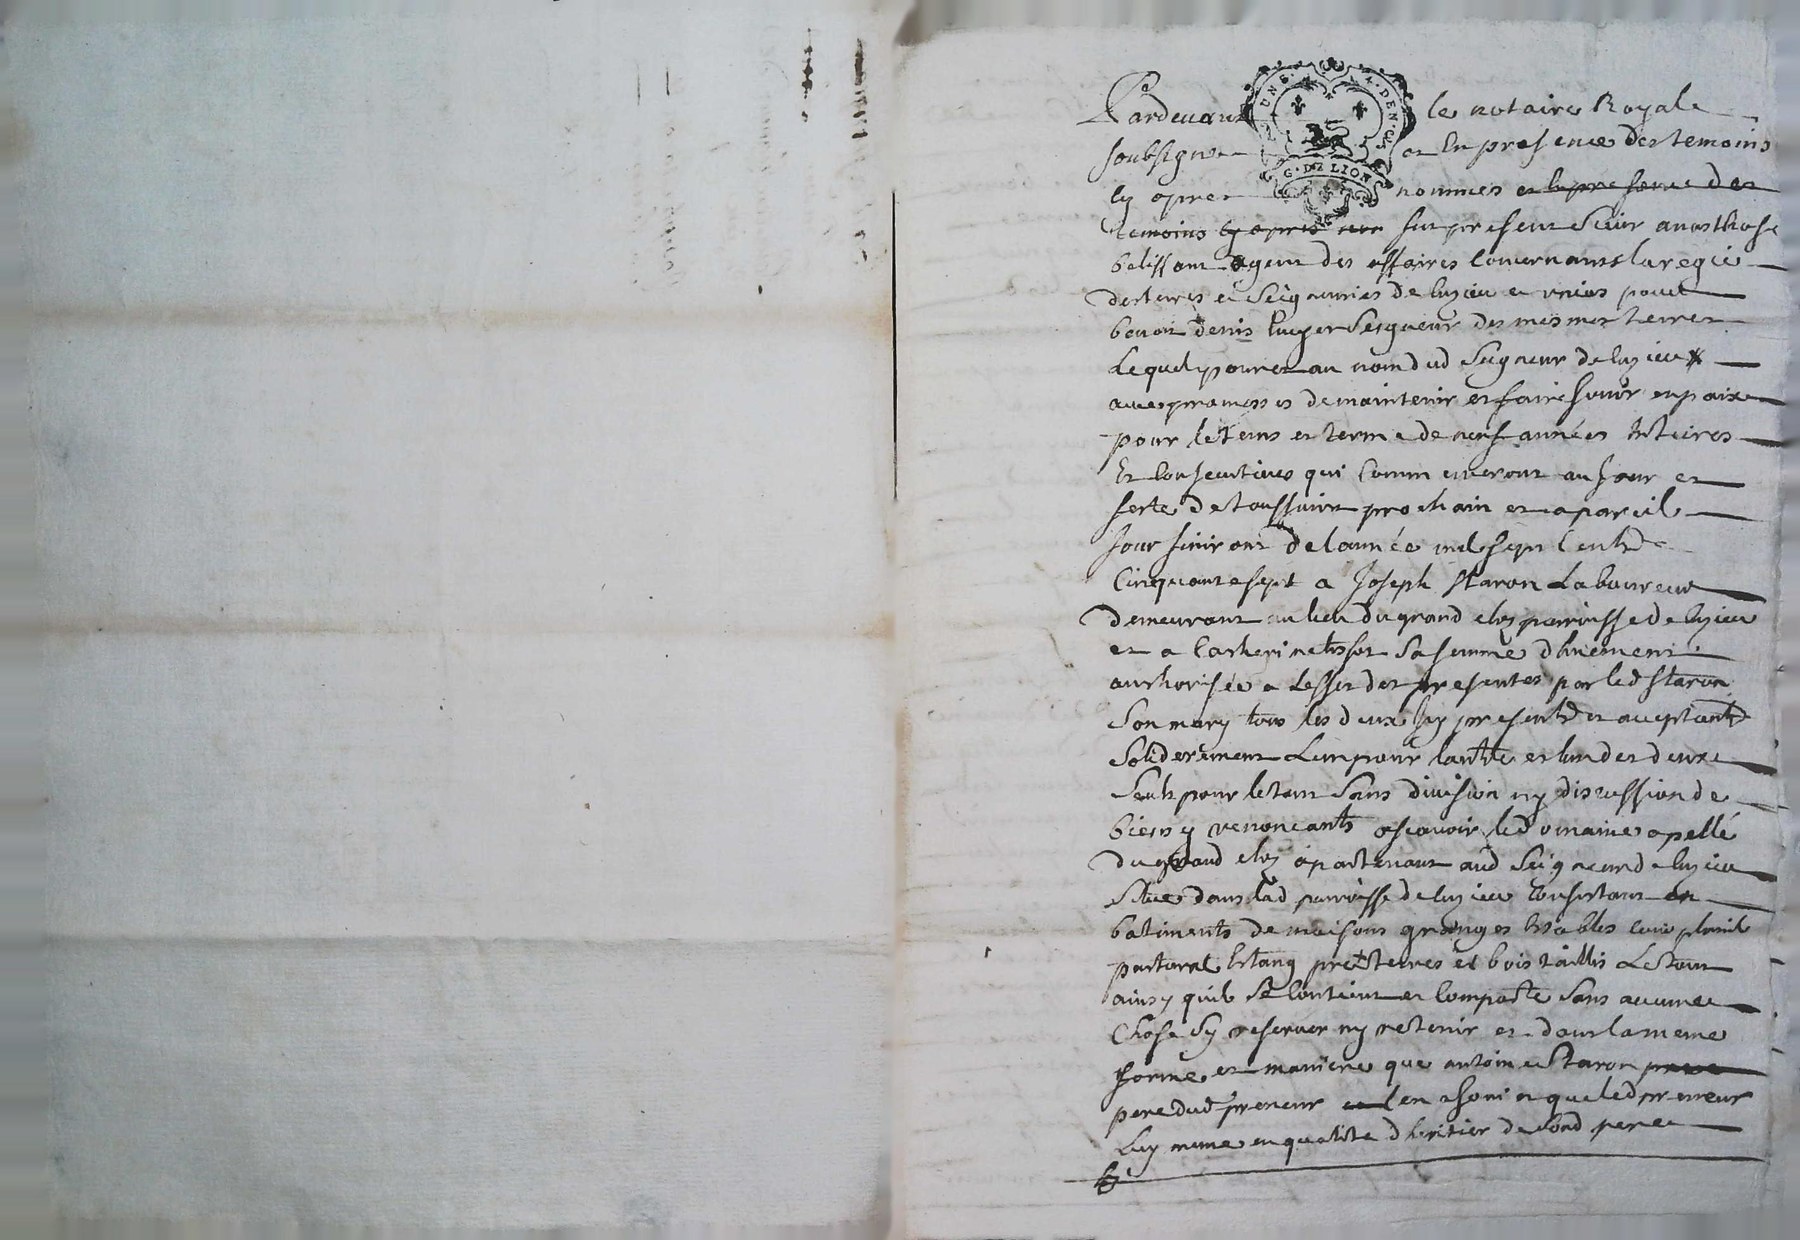 Pardevant le notaire Royale
soubsigne et En presence des temoins
cy apres nommés et la presence des
temoins cy apres nom fut present Sieur
agent des affaires concernants la regie
des terres et Seigneuries de luzieu et unies pour
benoit denis Seigneur des mesmes terres
Lequel pour et au nom dud Seigneur de luzieu
avec promesses de maintenir et faire jouir en paix
pour le tems et terme de neuf années Entieres
Et Consecutives qui Commenceront au jour et
feste de toussaint prochain et a pareil
jour finiront de lannée mil sept Cents
Cinquante sept a Joseph Staron Laboureur
demeurant au lieu du grand clos parroisse de luzieu
et a Catherine Sa femme dhuement
authorisée a Leffet des presentes par led Staron
Son mary tous les deux Icy presents et acceptants
Soliderement Lun pour lautre et lun des deux
Seuls pour le tout Sans division ny discussion de
biens y renonceants ascavoir le domaine apellé
du grand clos apartenant aud Seigneur de luzieu
Situé dans lad parroisse de luzieu Consistant en
batiments de maisons granges Estables
pastoral Estang prés terres et bois taillis Le tout
ainsy quil Se Contient et Comporte Sans aucune
Chose Sy reserver ny retenir et dans la meme
forme et maniere que antoine Staron
pere dud preneur en a joui et que led preneur
Luy meme en qualité dheritier de sond pere